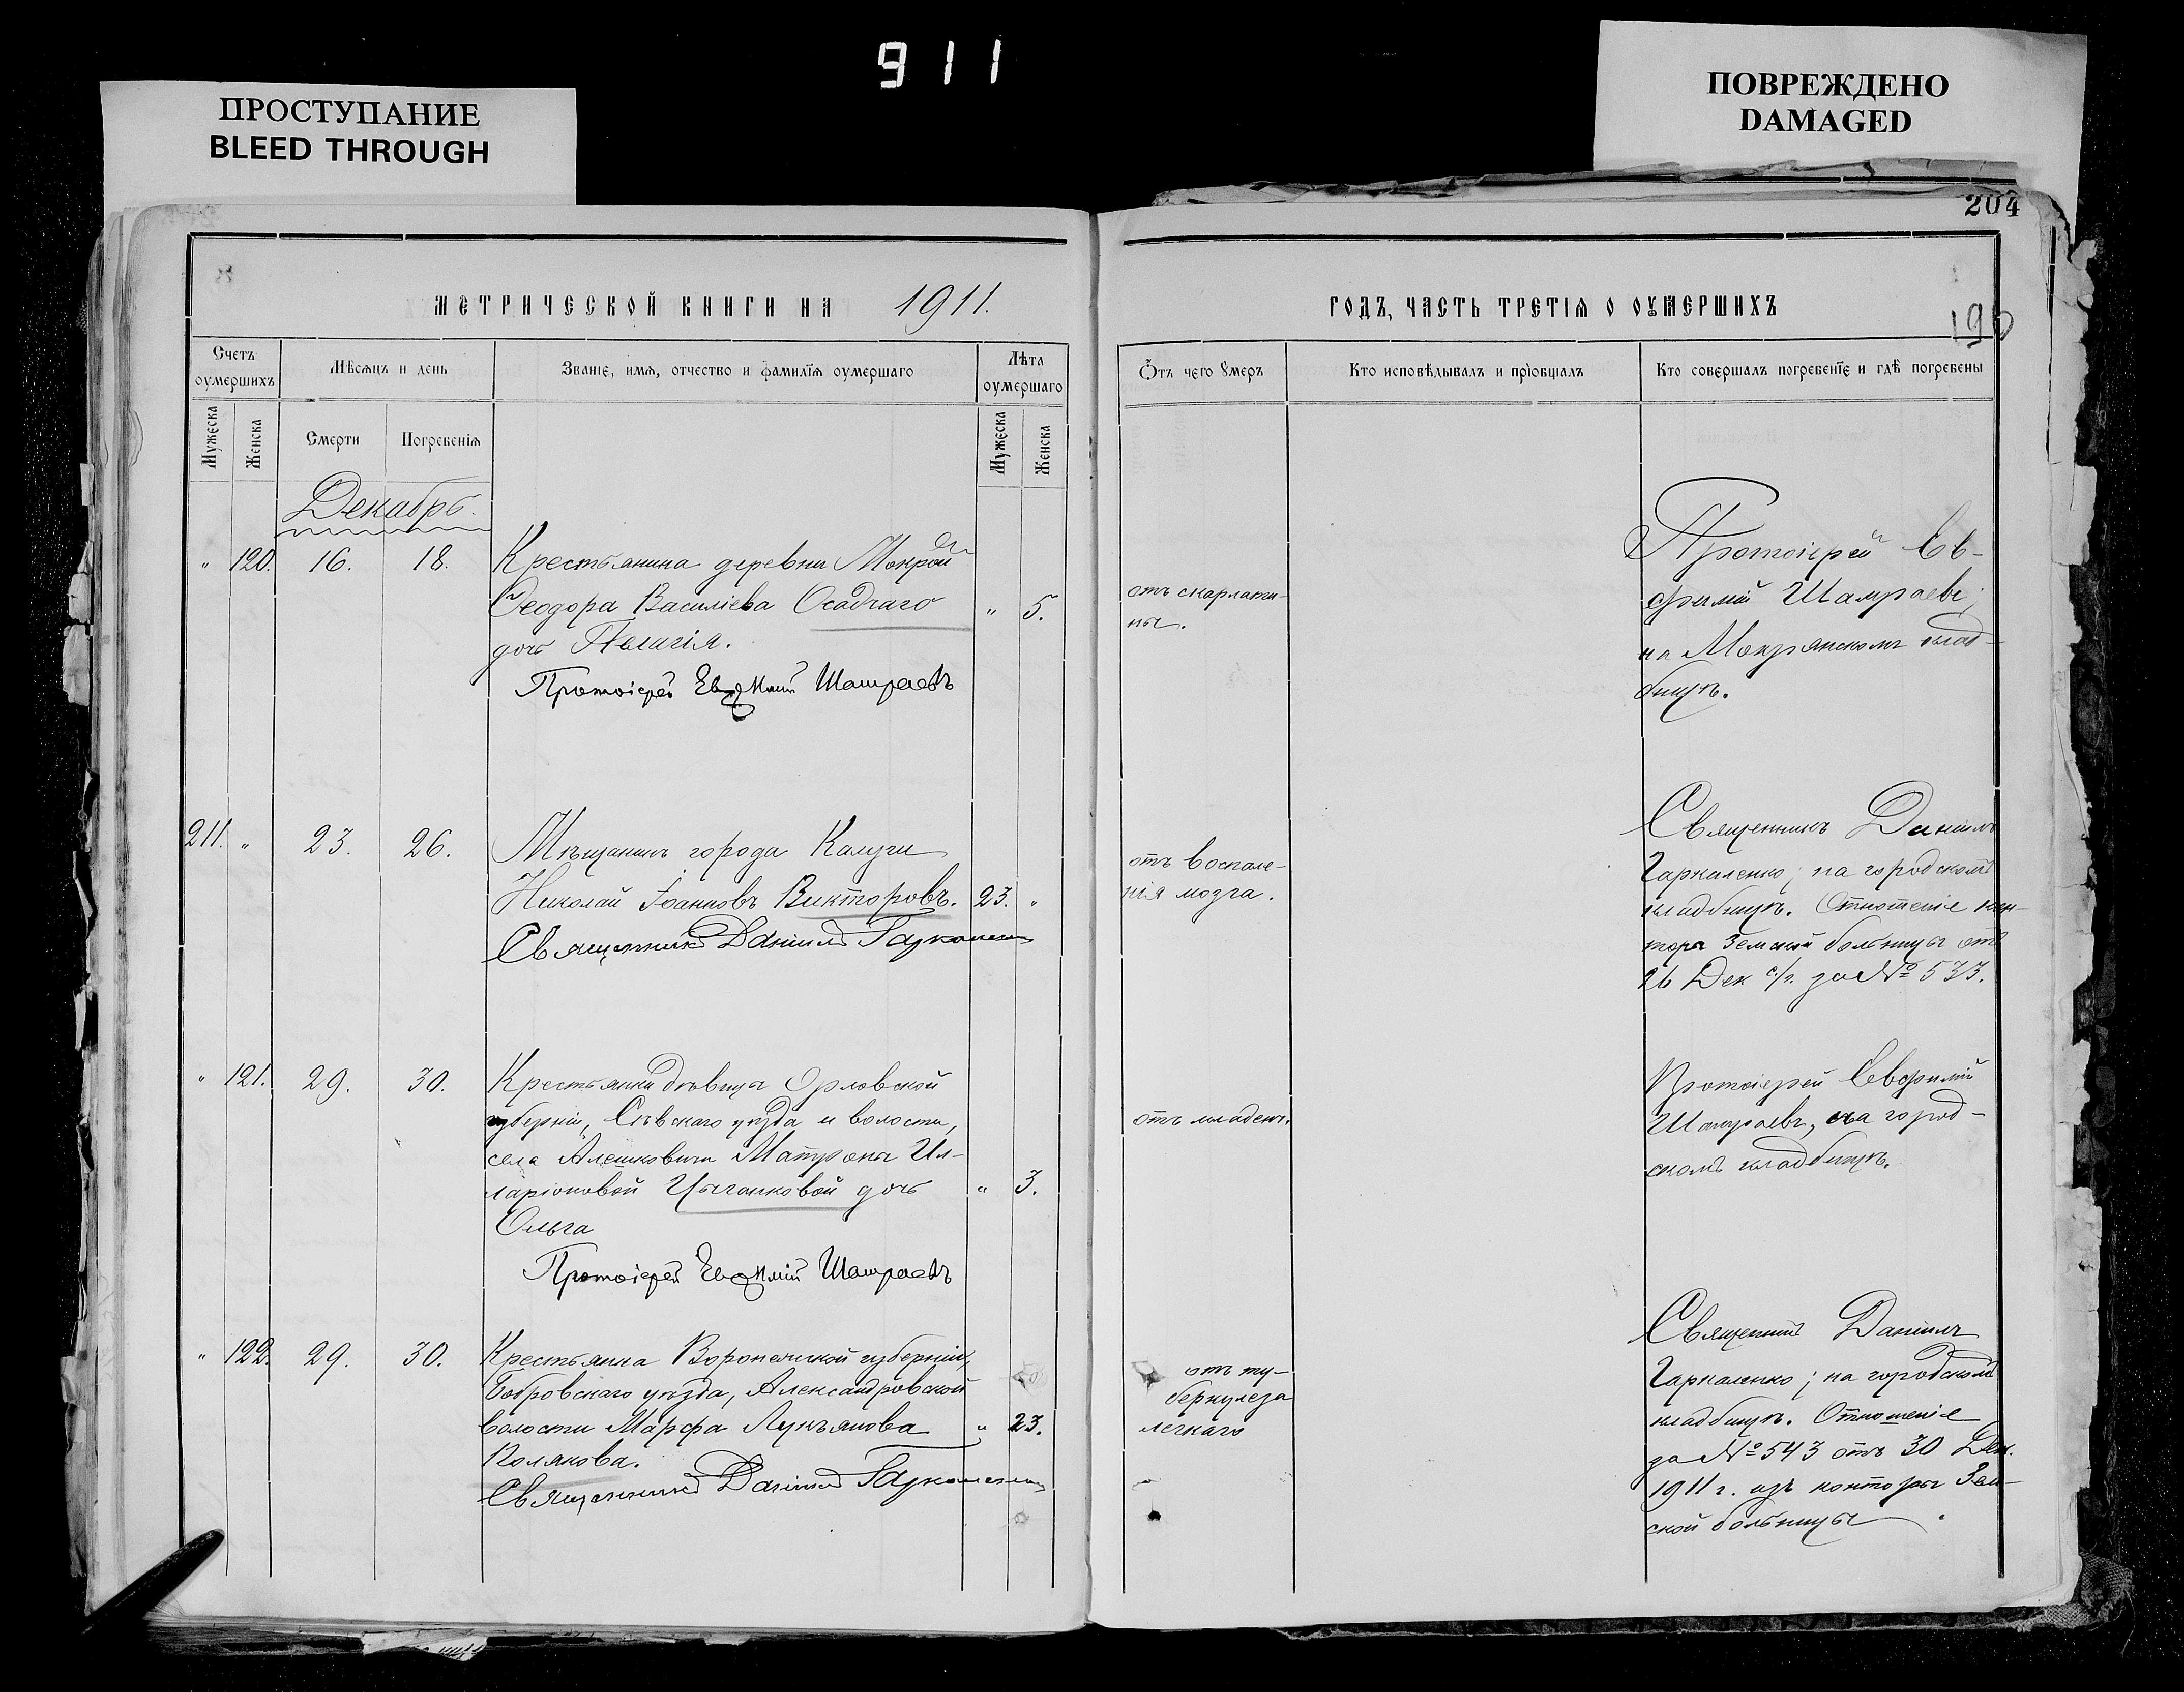 911
ПРОСТУПАНИЕ
BLEED THROUGH
ПОВРЕЖДЕНО
DAMAGED
204
МЕТРИЧЕСКОЙ КНИГИ НА 1911.
ГОДЪ, ЧАСТЬ ТРЕТІЯ О ОУМЕРШИХЪ
Счетъ оумершихъ
Мѣсяцъ и день
Званіе, имя, отчество и фамилія оумершаго
Лѣта оумершаго
Отъ чего умеръ
Кто исповѣдывалъ и пріобщалъ
Кто совершалъ погребеніе и гдѣ погребены
Мужеска
Женска
Смерти
Погребенія
Мужеска
Женска
Декабрь.
" 120. 16. 18.
Крестьянина деревни Мокрой
Ѳеодора Василіева Осадчаго " 5.
дочь Пелагія.
Протоіерей Евфимій Шамраевъ
отъ скарлати-
ны.
Протоіерей Ев-
фимій Шамраевъ;
на Мокрянскомъ клад-
бищѣ.
211. " 23. 26.
Мѣщанинъ города Калуги
Николай Іоанновъ Викторовъ. 23. "
Священникъ Даніилъ Гаркаленко
отъ воспале-
нія мозга.
Священникъ Даніилъ
Гаркаленко; на городскомъ
кладбищѣ. Отношеніе кон-
торы Земской больницы отъ
26 Дек с/г. за № 533.
" 121. 29. 30.
Крестьянки дѣвицы Орловской
губерніи, Сѣвскаго уѣзда и волости,
села Алешковичи Матроны Ил-
ларіоновой Цыганковой дочь " 3.
Ольга
Протоіерей Евфимій Шамраевъ
отъ младенч.
Протоіерей Евфимій
Шамраевъ, на город-
скомъ кладбищѣ.
" 122. 29. 30.
Крестьянка Воронежской губерніи,
Бобровскаго уѣзда, Александровской
волости Марфа Лукъянова " 23.
Полякова.
Священникъ Даніилъ Гаркаленко
отъ ту-
беркулеза
легкаго
Священникъ Даніилъ
Гаркаленко; на городскомъ
кладбищѣ. Отношеніе
за № 543 отъ 30 Дек.
1911 г. изъ конторы Зем-
ской больницы.